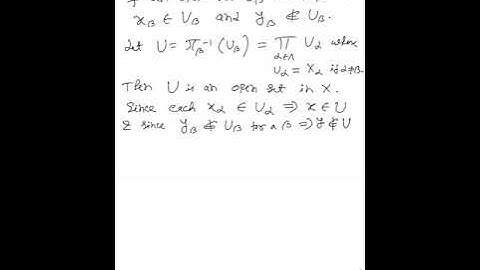 x_β ∈ U_β and y_β ∉ U_β.
Let U = π_β⁻¹ (U_β) = ∏_{α∈Λ} U_α where
U_α = X_α if α≠β.
Then U is an open set in X.
Since each x_α ∈ U_α ⇒ x ∈ U
& since y_β ∉ U_β for a β ⇒ y ∉ U